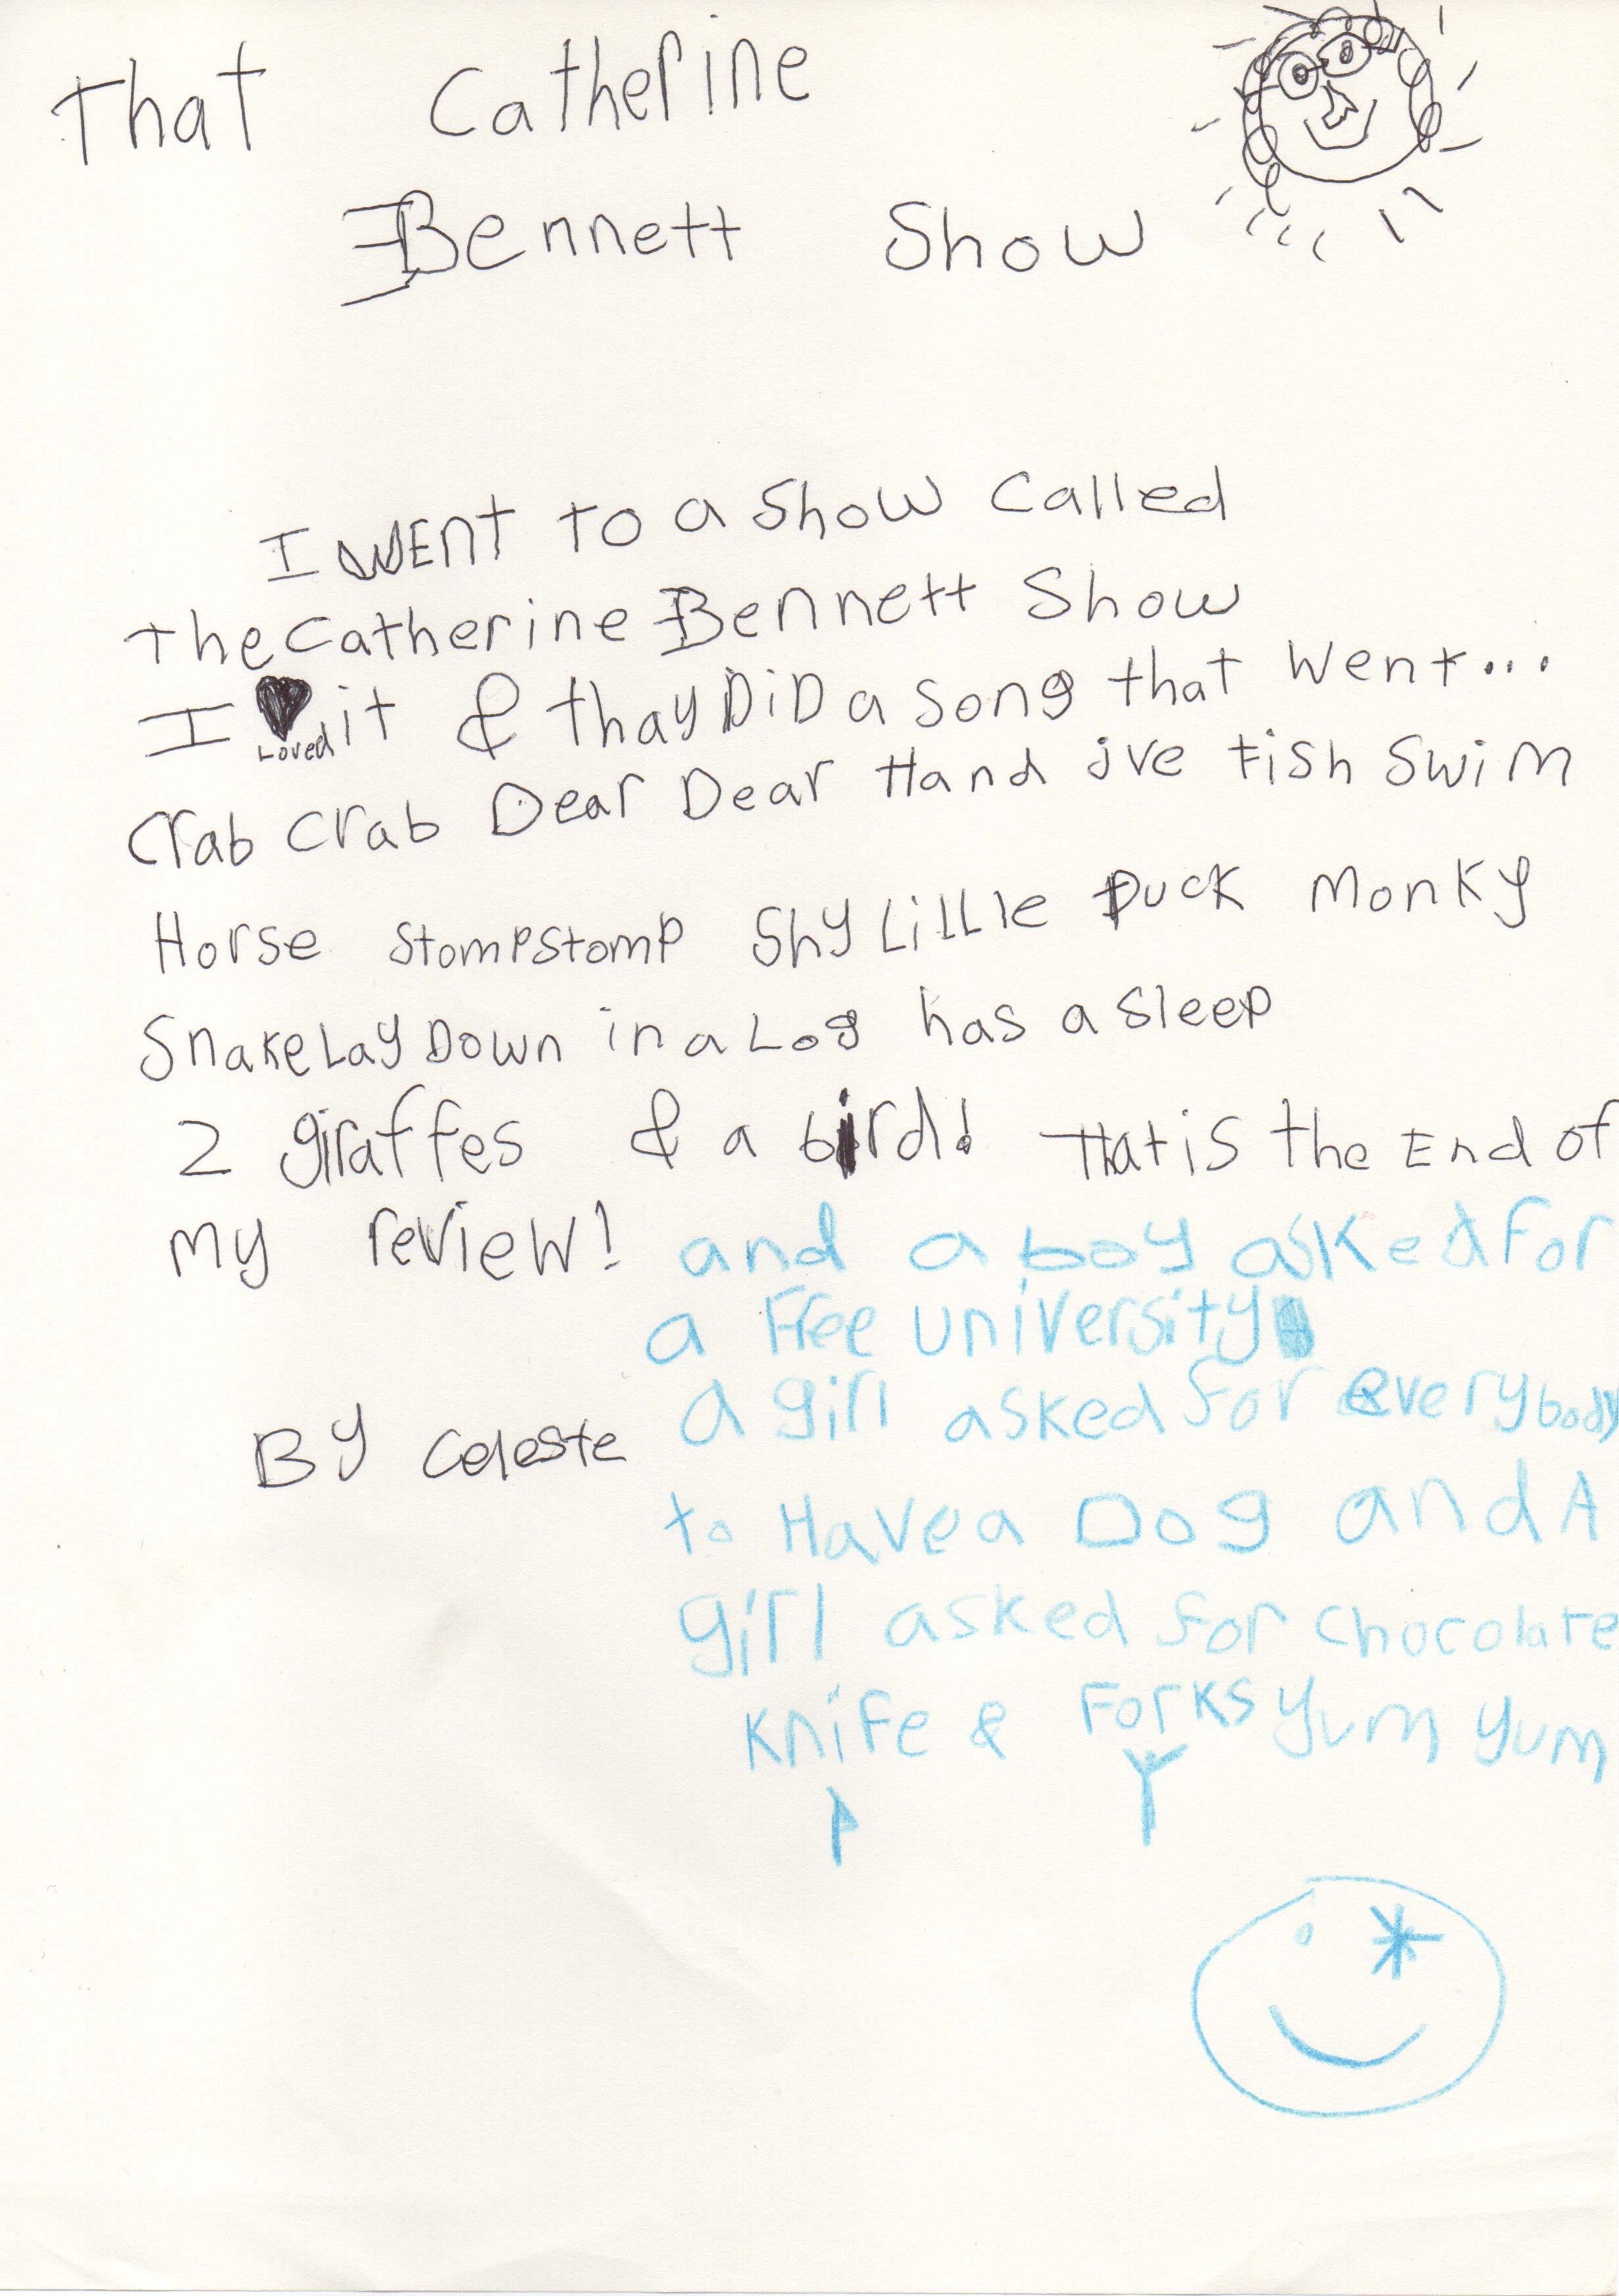 That Catherine
Bennett Show
I WENT to a Show Called
The Catherine Bennett Show
I ♥ Loved it & thay DiD a song that went...
Crab Crab Dear Dear Hand ive fish Swim
Horse stompstomp Shy Lillle Duck Monky
Snake Lay Down in a Log has a sleep
2 giraffes & a bird! That is the End of
my review! and a boy asked for
a Free university
a girl asked for everybody
By Celeste
to Have a Dog and A
girl asked for Chocolate
Knife & Forks yum yum